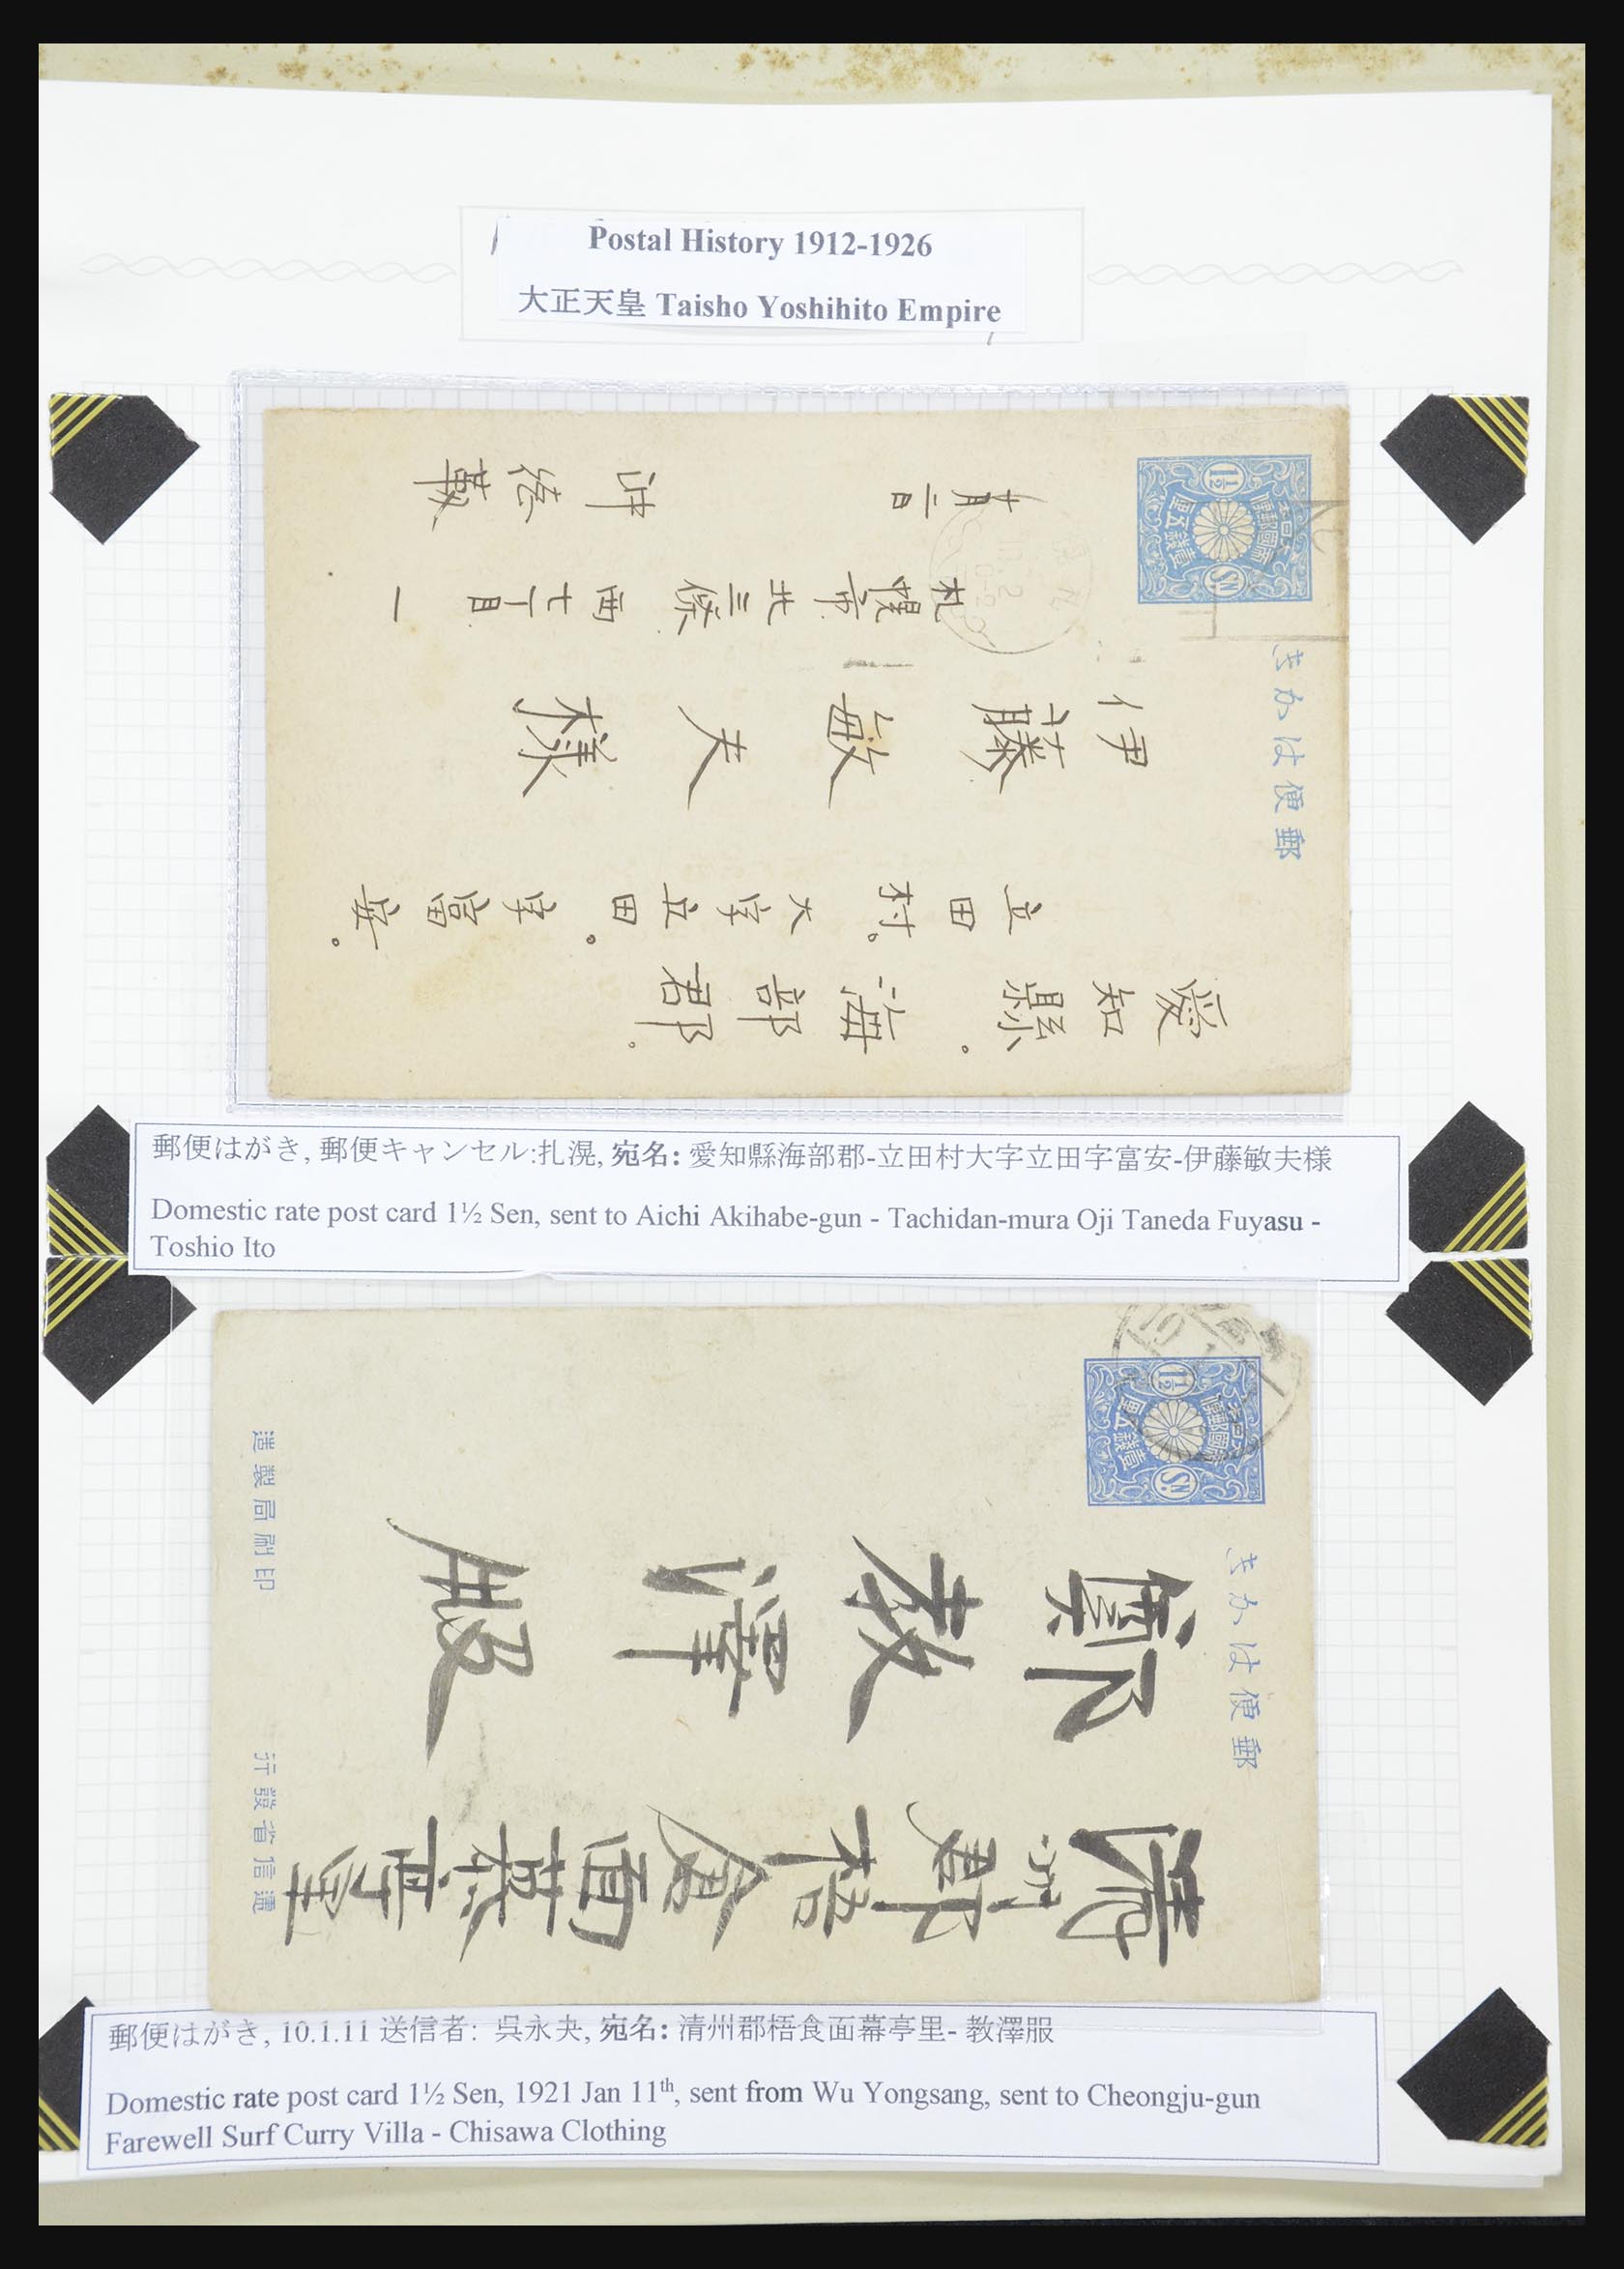 Postal History 1912-1926
大正天皇 Taisho Yoshihito Empire
郵便はがき
大日本帝國郵便
壹錢五厘
1½
Sn
愛知縣海部郡
立田村。大字立田。字富安。
伊藤敏夫様
札幌市北三條西十丁目一
郵便はがき, 郵便キャンセル:扎滉, 宛名: 愛知縣海部郡-立田村大字立田字富安-伊藤敏夫様
Domestic rate post card 1½ Sen, sent to Aichi Akihabe-gun - Tachidan-mura Oji Taneda Fuyasu -
Toshio Ito
郵便はがき
大日本帝國郵便
壹錢五厘
1½
Sn
清州郡梧倉面慕亭里
鄭教澤殿
逓信省發行
印刷局製造
郵便はがき, 10.1.11 送信者: 呉永夬, 宛名: 清州郡梧食面幕亭里- 教澤服
Domestic rate post card 1½ Sen, 1921 Jan 11th, sent from Wu Yongsang, sent to Cheongju-gun
Farewell Surf Curry Villa - Chisawa Clothing